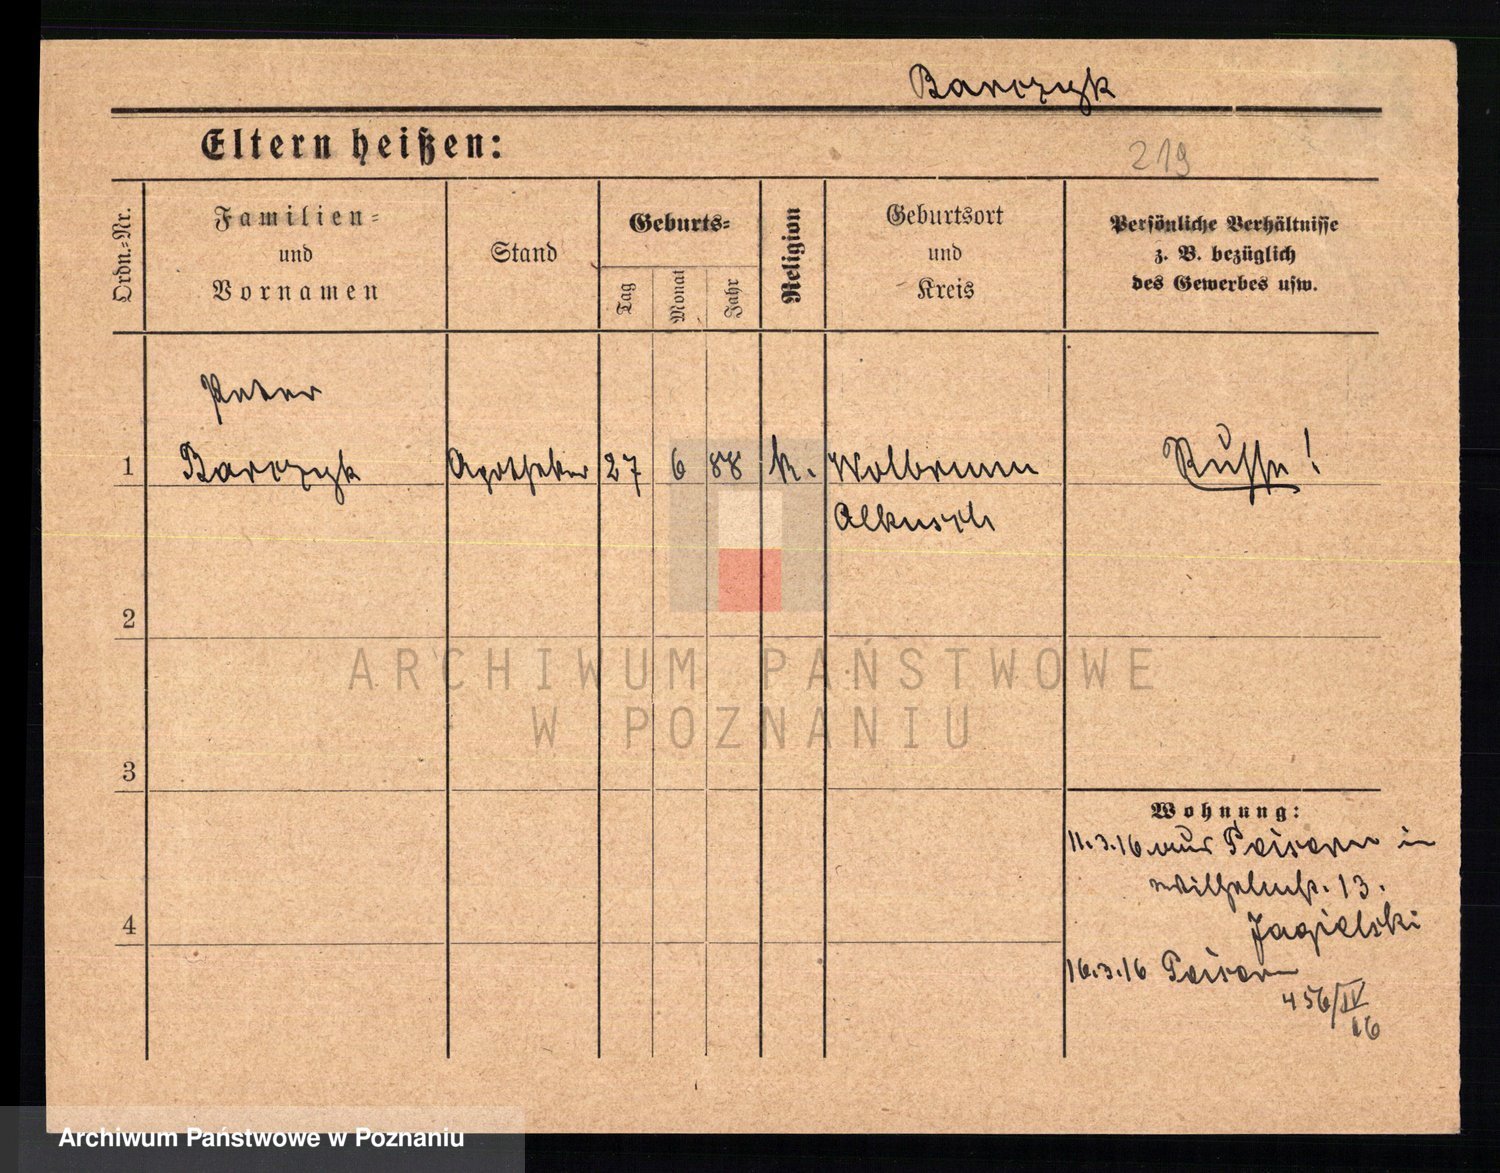 Barczyk
Eltern heißen:
219
Ordn.-Nr.
Familien-
und
Vornamen
Stand
Geburts-
Tag
Monat
Jahr
Religion
Geburtsort
und
Kreis
Persönliche Verhältnisse
z. B. bezüglich
des Gewerbes usw.
Peter
1 Barczyk Apotheker 27 6 88 k. Wolbrumm Russe!
Alkusch
2
ARCHIWUM PAŃSTWOWE
W POZNANIU
3
Wohnung:
11.3.16 aus in
Wilhelmstr. 13.
Jagielski
4
16.3.16
456/IV
16
Archiwum Państwowe w Poznaniu